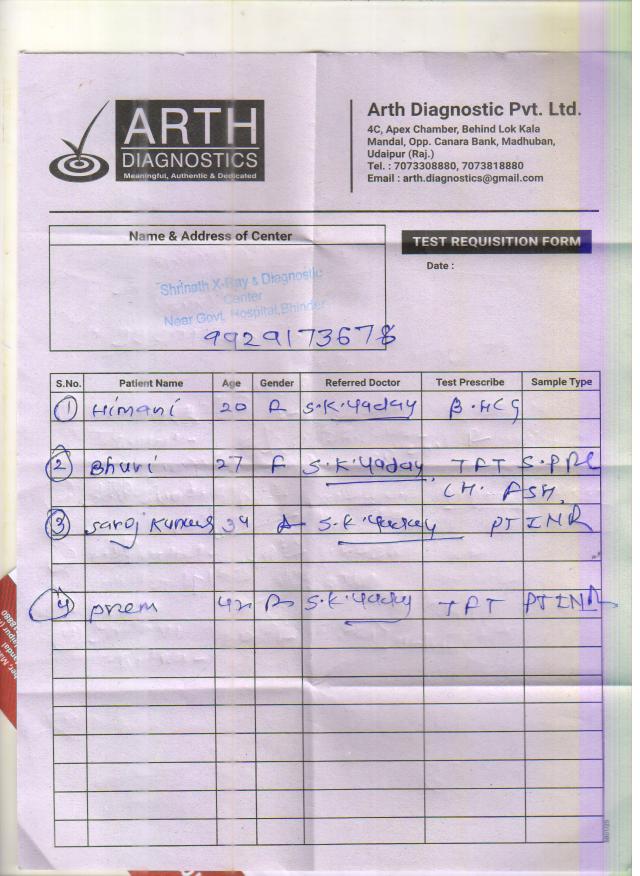 ARTH
DIAGNOSTICS
Meaningful, Authentic & Dedicated
Arth Diagnostic Pvt. Ltd.
4C, Apex Chamber, Behind Lok Kala
Mandal, Opp. Canara Bank, Madhuban,
Udaipur (Raj.)
Tel. : 7073308880, 7073818880
Email : arth.diagnostics@gmail.com
Name & Address of Center
TEST REQUISITION FORM
Date :
Shrinath X-Ray & Diagnostic
Center
Near Govt. Hospital, Bhinder
9929173678
S.No. Patient Name Age Gender Referred Doctor Test Prescribe Sample Type
1 Himani 20 S.K.Yadav B.HCG
2 Bhuri 27 F S.K.Yadav, TFT S.PRL
LH. FSH,
3 Saroj Kumar 34 S.K.Yadav PT INR
4 Prem 42 S.K.Yadav TFT PTINR